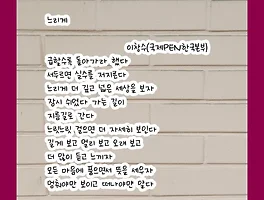 느리게
이창수(국제PEN한국본부)
급할수록 돌아가라 했다
서두르면 실수를 저지른다
느리게 더 깊고 넓은 세상을 보자
잠시 쉬었다 가는 길이
지름길로 간다
느릿느릿 걸으면 더 자세히 보인다
길게 보고 멀리 보고 오래 보고
더 많이 듣고 느끼자
모든 마음에 품으면서 뜻을 세우자
멈춰야만 보이고 떠나야만 알다